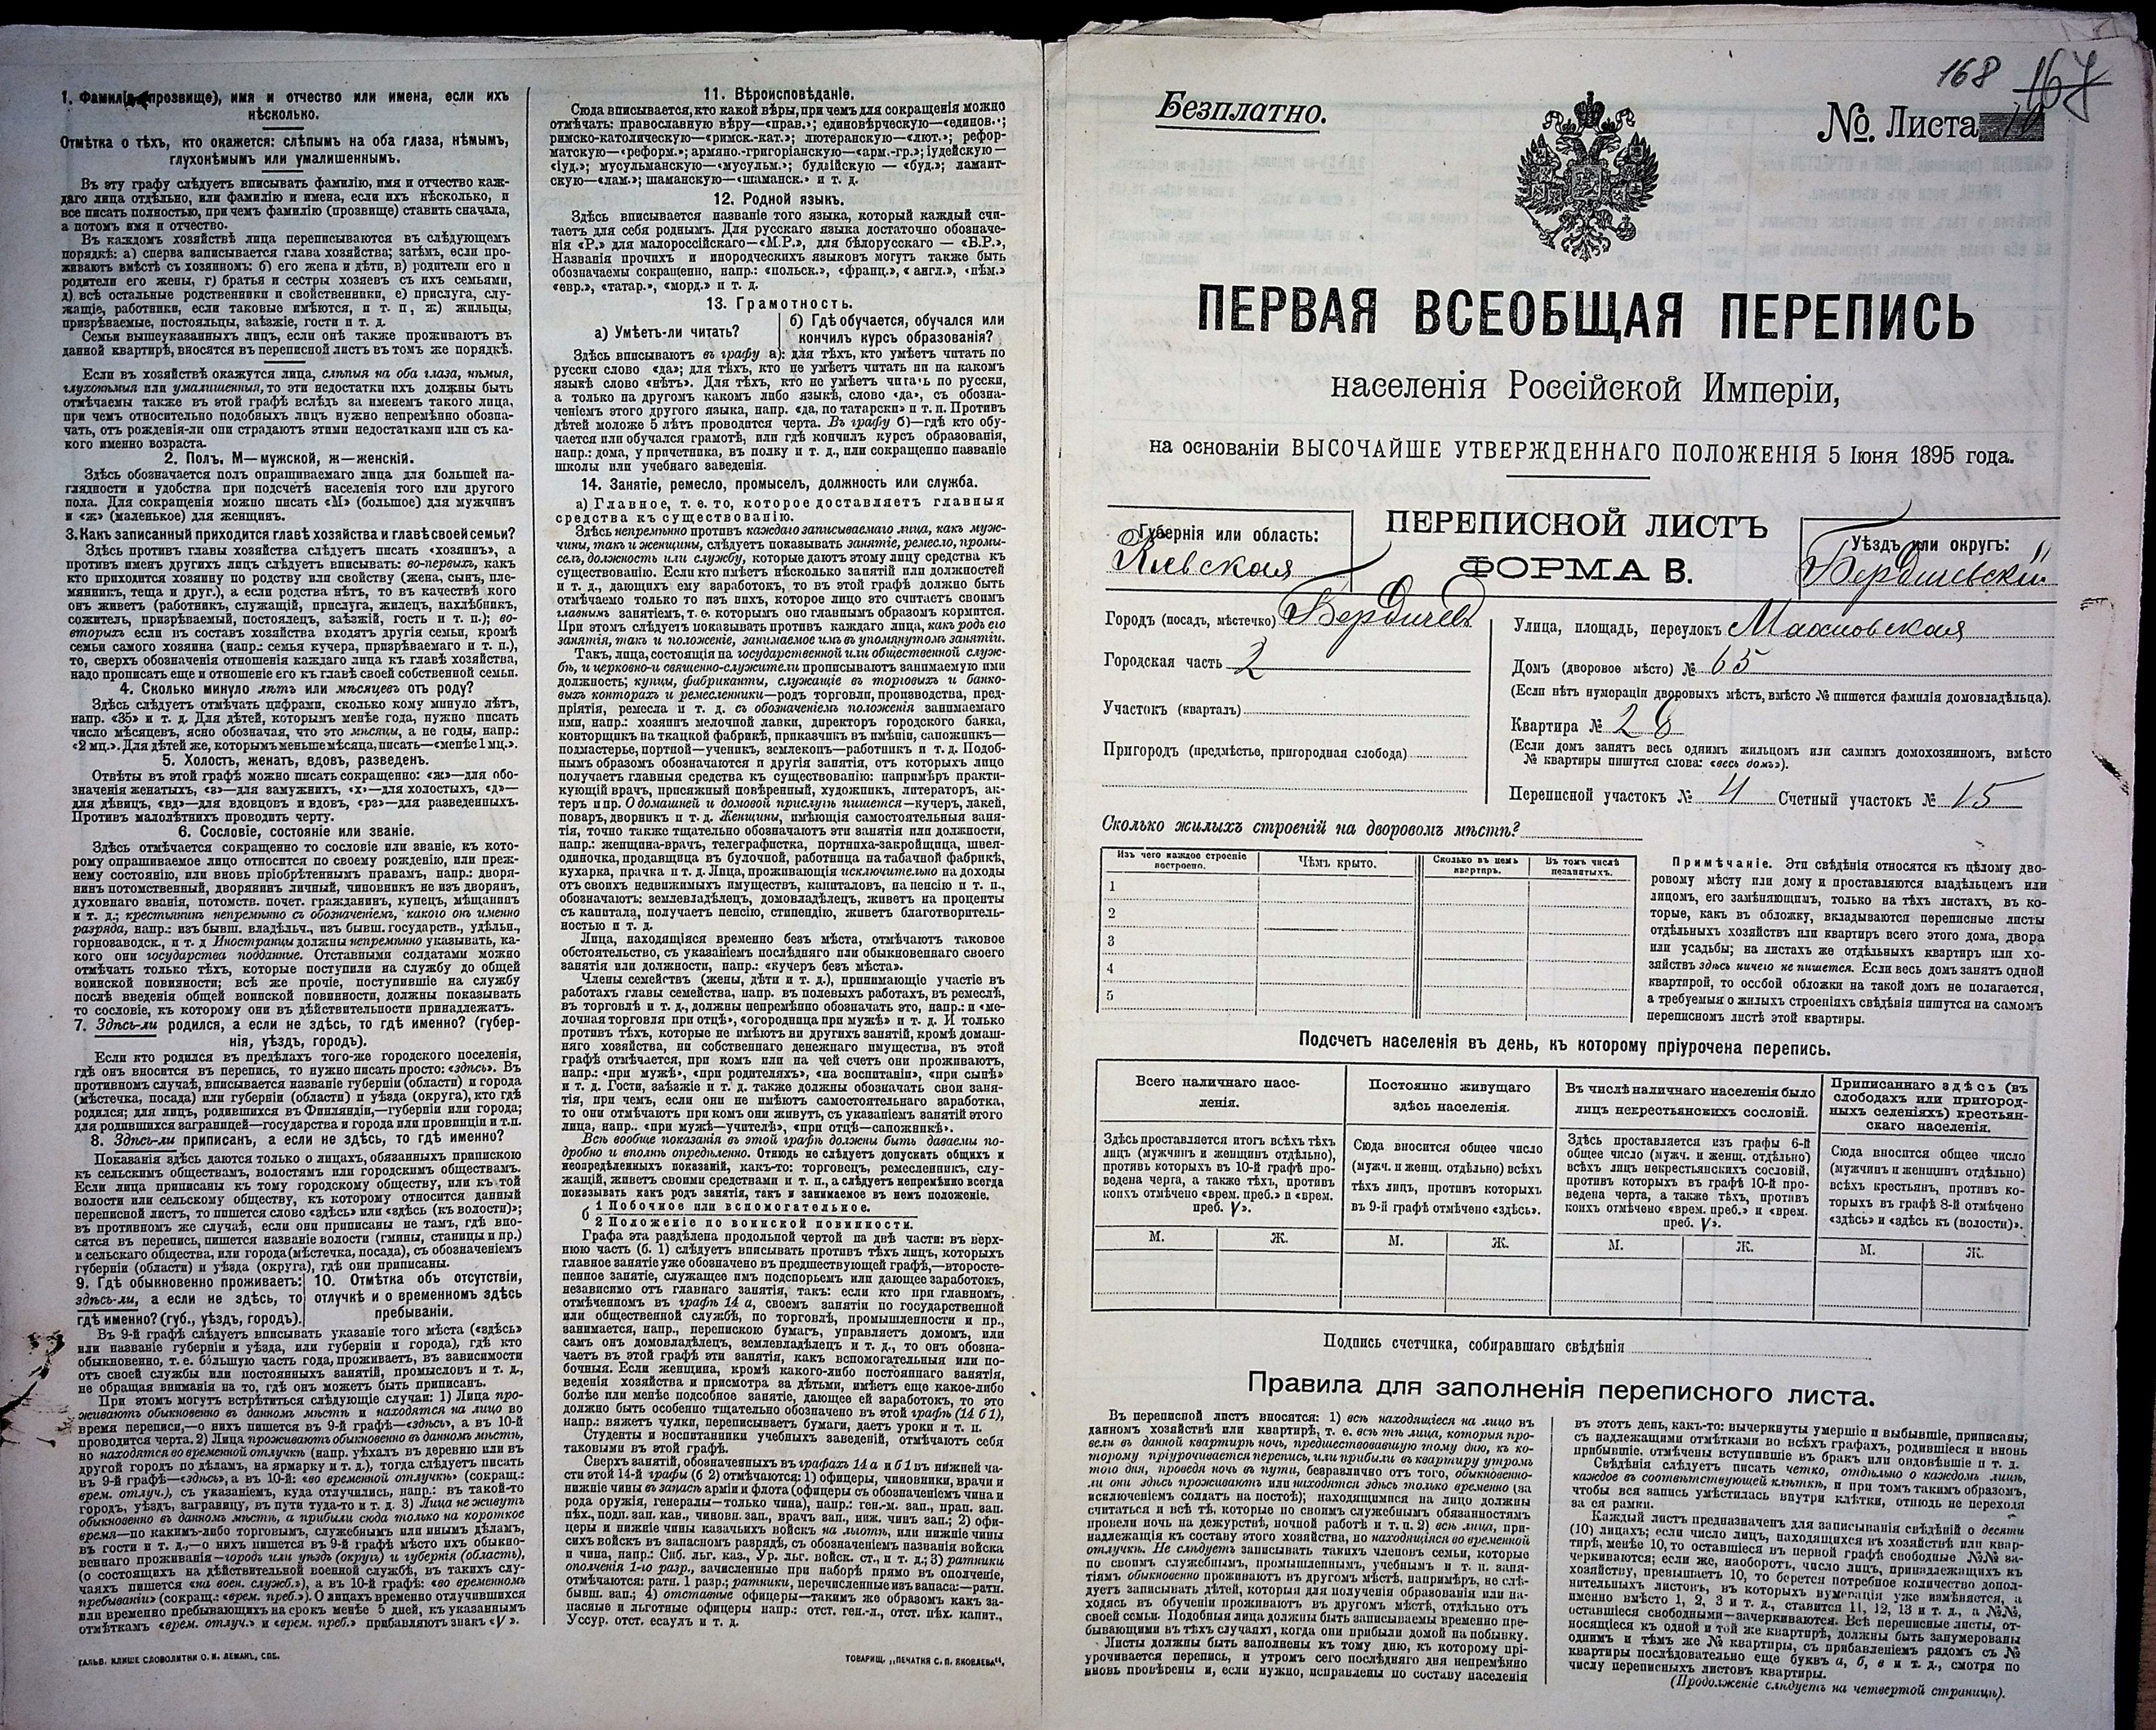 1. Фамилія (прозвище), имя и отчество или имена, если ихъ
нѣсколько.
Отмѣтка о тѣхъ, кто окажется: слѣпымъ на оба глаза, нѣмымъ,
глухонѣмымъ или умалишеннымъ.
Въ эту графу слѣдуетъ вписывать фамилію, имя и отчество каж-
даго лица отдѣльно, или фамилію и имена, если ихъ нѣсколько, и
все писать полностью, при чемъ фамилію (прозвище) ставить сначала,
а потомъ имя и отчество.
Въ каждомъ хозяйствѣ лица переписываются въ слѣдующемъ
порядкѣ: а) сперва записывается глава хозяйства; затѣмъ, если про-
живаютъ вмѣстѣ съ хозяиномъ: б) его жена и дѣти, в) родители его и
родители его жены, г) братья и сестры хозяевъ съ ихъ семьями,
д) всѣ остальные родственники и свойственники, е) прислуга, слу-
жащіе, работники, если таковые имѣются, и т. п, ж) жильцы,
призрѣваемые, постояльцы, заѣзжіе, гости и т. д.
Семьи вышеуказанныхъ лицъ, если онѣ также проживаютъ въ
данной квартирѣ, вносятся въ переписной листъ въ томъ же порядкѣ.
Если въ хозяйствѣ окажутся лица, слѣпыя на оба глаза, нѣмыя,
глухонѣмыя или умалишенныя, то эти недостатки ихъ должны быть
отмѣчаемы также въ этой графѣ вслѣдъ за именемъ такого лица,
при чемъ относительно подобныхъ лицъ нужно непремѣнно обозна-
чать, отъ рожденія-ли они страдаютъ этими недостатками или съ ка-
кого именно возраста.
2. Полъ. М—мужской, ж—женскій.
Здѣсь обозначается полъ опрашиваемаго лица для большей на-
глядности и удобства при подсчетѣ населенія того или другого
пола. Для сокращенія можно писать «М» (большое) для мужчинъ
и «ж» (маленькое) для женщинъ.
3. Какъ записанный приходится главѣ хозяйства и главѣ своей семьи?
Здѣсь противъ главы хозяйства слѣдуетъ писать «хозяинъ», а
противъ именъ другихъ лицъ слѣдуетъ вписывать: во-первыхъ, какъ
кто приходится хозяину по родству или свойству (жена, сынъ, пле-
мянникъ, теща и друг.), а если родства нѣтъ, то въ качествѣ кого
онъ живетъ (работникъ, служащій, прислуга, жилецъ, нахлѣбникъ,
сожитель, призрѣваемый, постоялецъ, заѣзжій, гость и т. п.); во-
вторыхъ если въ составъ хозяйства входятъ другія семьи, кромѣ
семьи самого хозяина (напр.: семья кучера, призрѣваемаго и т. п.),
то, сверхъ обозначенія отношенія каждаго лица къ главѣ хозяйства,
надо прописать еще и отношеніе его къ главѣ своей собственной семьи.
4. Сколько минуло лѣтъ или мѣсяцевъ отъ роду?
Здѣсь слѣдуетъ отмѣчать цифрами, сколько кому минуло лѣтъ,
напр. «35» и т. д. Для дѣтей, которымъ менѣе года, нужно писать
число мѣсяцевъ, ясно обозначая, что это мѣсяцы, а не годы, напр.:
«2 мц.». Для дѣтей же, которымъ меньше мѣсяца, писать—«менѣе 1 мц.».
5. Холостъ, женатъ, вдовъ, разведенъ.
Отвѣты въ этой графѣ можно писать сокращенно: «ж»—для обо-
значенія женатыхъ, «з»—для замужнихъ, «х»—для холостыхъ, «д»—
для дѣвицъ, «вд»—для вдовцовъ и вдовъ, «рз»—для разведенныхъ.
Противъ малолѣтнихъ проводить черту.
6. Сословіе, состояніе или званіе.
Здѣсь отмѣчается сокращенно то сословіе или званіе, къ кото-
рому опрашиваемое лицо относится по своему рожденію, или преж-
нему состоянію, или вновь пріобрѣтеннымъ правамъ, напр.: дворя-
нинъ потомственный, дворянинъ личный, чиновникъ не изъ дворянъ,
духовнаго званія, потомств. почет. гражданинъ, купецъ, мѣщанинъ
и т. д.; крестьянинъ непремѣнно съ обозначеніемъ, какого онъ именно
разряда, напр.: изъ бывш. владѣльч., изъ бывш. государств., удѣльн.,
горнозаводск., и т. д Иностранцы должны непремѣнно указывать, ка-
кого они государства подданные. Отставными солдатами можно
отмѣчать только тѣхъ, которые поступили на службу до общей
воинской повинности; всѣ же прочіе, поступившіе на службу
послѣ введенія общей воинской повинности, должны показывать
то сословіе, къ которому они въ дѣйствительности принадлежатъ.
7. Здѣсь-ли родился, а если не здѣсь, то гдѣ именно? (губер-
нія, уѣздъ, городъ).
Если кто родился въ предѣлахъ того-же городского поселенія,
гдѣ онъ вносится въ перепись, то нужно писать просто: «здѣсь». Въ
противномъ случаѣ, вписывается названіе губерніи (области) и города
(мѣстечка, посада) или губерніи (области) и уѣзда (округа), кто гдѣ
родился; для лицъ, родившихся въ Финляндіи,—губерніи или города;
для родившихся заграницей—государства и города или провинціи и т.п.
8. Здѣсь-ли приписанъ, а если не здѣсь, то гдѣ именно?
Показанія здѣсь даются только о лицахъ, обязанныхъ припискою
къ сельскимъ обществамъ, волостямъ или городскимъ обществамъ.
Если лица приписаны къ тому городскому обществу, или къ той
волости или сельскому обществу, къ которому относится данный
переписной листъ, то пишется слово «здѣсь» или «здѣсь (къ волости)»;
въ противномъ же случаѣ, если они приписаны не тамъ, гдѣ вно-
сятся въ перепись, пишется названіе волости (гмины, станицы и пр.)
и сельскаго общества, или города (мѣстечка, посада), съ обозначеніемъ
губерніи (области) и уѣзда (округа), гдѣ они приписаны.
9. Гдѣ обыкновенно проживаетъ:
здѣсь-ли, а если не здѣсь, то
гдѣ именно? (губ., уѣздъ, городъ).
10. Отмѣтка объ отсутствіи,
отлучкѣ и о временномъ здѣсь
пребываніи.
Въ 9-й графѣ слѣдуетъ вписывать указаніе того мѣста («здѣсь»
или названіе губерніи и уѣзда, или губерніи и города), гдѣ кто
обыкновенно, т. е. большую часть года, проживаетъ, въ зависимости
отъ своей службы или постоянныхъ занятій, промысловъ и т. д.,
не обращая вниманія на то, гдѣ онъ можетъ быть приписанъ.
При этомъ могутъ встрѣтиться слѣдующіе случаи: 1) Лица про-
живаютъ обыкновенно въ данномъ мѣстѣ и находятся на лицо во
время переписи,—о нихъ пишется въ 9-й графѣ—«здѣсь», а въ 10-й
проводится черта. 2) Лица проживаютъ обыкновенно въ данномъ мѣстѣ,
но находятся во временной отлучкѣ (напр. уѣхалъ въ деревню или въ
другой городъ по дѣламъ, на ярмарку и т. д.), тогда слѣдуетъ писать
въ 9-й графѣ—«здѣсь», а въ 10-й: «во временной отлучкѣ» (сокращ.:
врем. отлуч.), съ указаніемъ, куда отлучились, напр.: въ такой-то
городъ, уѣздъ, заграницу, въ пути туда-то и т. д. 3) Лица не живутъ
обыкновенно въ данномъ мѣстѣ, а прибыли сюда только на короткое
время—по какимъ-либо торговымъ, служебнымъ или инымъ дѣламъ,
въ гости и т. д.,—о нихъ пишется въ 9-й графѣ мѣсто ихъ обыкно-
веннаго проживанія—городъ или уѣздъ (округъ) и губернія (область),
(о состоящихъ на дѣйствительной военной службѣ, въ такихъ слу-
чаяхъ пишется «на воен. службѣ»), а въ 10-й графѣ: «во временномъ
пребываніи» (сокращ.: «врем. преб.»). О лицахъ временно отлучившихся
или временно пребывающихъ на срокъ менѣе 5 дней, къ указаннымъ
отмѣткамъ «врем. отлуч.» и «врем. преб.» прибавляютъ знакъ «V».
ГАЛЬВ. КЛИШЕ СЛОВОЛИТНИ О. И. ЛЕМАНЪ, СПБ.
11. Вѣроисповѣданіе.
Сюда вписывается, кто какой вѣры, при чемъ для сокращенія можно
отмѣчать: православную вѣру—«прав.»; единовѣрческую—«единов.»;
римско-католическую—«римск.-кат.»; лютеранскую—«лют.»; рефор-
матскую—«реформ.»; армяно-григоріанскую—«арм.-гр.»; іудейскую—
«іуд.»; мусульманскую—«мусульм.»; будійскую—«буд.»; ламаит-
скую—«лам.»; шаманскую—«шаманск.» и т. д.
12. Родной языкъ.
Здѣсь вписывается названіе того языка, который каждый счи-
таетъ для себя роднымъ. Для русскаго языка достаточно обозначе-
нія «Р.» для малороссійскаго—«М.Р.», для бѣлорусскаго — «Б.Р.»,
Названія прочихъ и инородческихъ языковъ могутъ также быть
обозначаемы сокращенно, напр.: «польск.», «франц.», «англ.», «нѣм.»
«евр.», «татар.», «морд.» и т. д.
13. Грамотность.
а) Умѣетъ-ли читать?
б) Гдѣ обучается, обучался или
кончилъ курсъ образованія?
Здѣсь вписываютъ въ графу а): для тѣхъ, кто умѣетъ читать по
русски слово «да»; для тѣхъ, кто не умѣетъ читать ни на какомъ
языкѣ слово «нѣтъ». Для тѣхъ, кто не умѣетъ читать по русски,
а только на другомъ какомъ либо языкѣ, слово «да», съ обозна-
ченіемъ этого другого языка, напр. «да, по татарски» и т. п. Противъ
дѣтей моложе 5 лѣтъ проводится черта. Въ графу б)—гдѣ кто обу-
чается или обучался грамотѣ, или гдѣ кончилъ курсъ образованія,
напр.: дома, у причетника, въ полку и т. д., или сокращенно названіе
школы или учебнаго заведенія.
14. Занятіе, ремесло, промыселъ, должность или служба.
а) Главное, т. е. то, которое доставляетъ главныя
средства къ существованію.
Здѣсь непремѣнно противъ каждаго записываемаго лица, какъ муж-
чины, такъ и женщины, слѣдуетъ показывать занятіе, ремесло, промы-
селъ, должность или службу, которые даютъ этому лицу средства къ
существованію. Если кто имѣетъ нѣсколько занятій или должностей
и т. д., дающихъ ему заработокъ, то въ этой графѣ должно быть
отмѣчаемо только то изъ нихъ, которое лицо это считаетъ своимъ
главнымъ занятіемъ, т. е. которымъ оно главнымъ образомъ кормится.
При этомъ слѣдуетъ показывать противъ каждаго лица, какъ родъ его
занятія, такъ и положеніе, занимаемое имъ въ упомянутомъ занятіи.
Такъ, лица, состоящія на государственной или общественной служ-
бѣ, и церковно-и священно-служители прописываютъ занимаемую ими
должность; купцы, фабриканты, служащіе въ торговыхъ и банко-
выхъ конторахъ и ремесленники—родъ торговли, производства, пред-
пріятія, ремесла и т. д. съ обозначеніемъ положенія занимаемаго
ими, напр.: хозяинъ мелочной лавки, директоръ городского банка,
конторщикъ на ткацкой фабрикѣ, приказчикъ въ имѣніи, сапожникъ—
подмастерье, портной—ученикъ, землекопъ—работникъ и т. д. Подоб-
нымъ образомъ обозначаются и другія занятія, отъ которыхъ лицо
получаетъ главныя средства къ существованію: напримѣръ практи-
кующій врачъ, присяжный повѣренный, художникъ, литераторъ, ак-
теръ и пр. О домашней и домовой прислугѣ пишется—кучеръ, лакей,
поваръ, дворникъ и т. д. Женщины, имѣющія самостоятельныя заня-
тія, точно также тщательно обозначаютъ эти занятія или должности,
напр.: женщина-врачъ, телеграфистка, портниха-закройщица, швея-
одиночка, продавщица въ булочной, работница на табачной фабрикѣ,
кухарка, прачка и т. д. Лица, проживающія исключительно на доходы
отъ своихъ недвижимыхъ имуществъ, капиталовъ, на пенсію и т. п.,
обозначаютъ: землевладѣлецъ, домовладѣлецъ, живетъ на проценты
съ капитала, получаетъ пенсію, стипендію, живетъ благотворитель-
ностью и т. д.
Лица, находящіяся временно безъ мѣста, отмѣчаютъ таковое
обстоятельство, съ указаніемъ послѣдняго или обыкновеннаго своего
занятія или должности, напр.: «кучеръ безъ мѣста».
Члены семействъ (жены, дѣти и т. д.), принимающіе участіе въ
работахъ главы семейства, напр. въ полевыхъ работахъ, въ ремеслѣ,
въ торговлѣ и т. д., должны непремѣнно обозначать это, напр.: и «ме-
лочная торговля при отцѣ», «огородница при мужѣ» и т. д. И только
противъ тѣхъ, которые не имѣютъ ни другихъ занятій, кромѣ домаш-
няго хозяйства, ни собственнаго денежнаго имущества, въ этой
графѣ отмѣчается, при комъ или на чей счетъ они проживаютъ,
напр.: «при мужѣ», «при родителяхъ», «на воспитаніи», «при сынѣ»
и т. д. Гости, заѣзжіе и т. д. также должны обозначать свои заня-
тія, при чемъ, если они не имѣютъ самостоятельнаго заработка,
то они отмѣчаютъ при комъ они живутъ, съ указаніемъ занятій этого
лица, напр.. «при мужѣ—учителѣ», «при отцѣ—сапожникѣ».
Всѣ вообще показанія въ этой графѣ должны быть даваемы по-
дробно и вполнѣ опредѣленно. Отнюдь не слѣдуетъ допускать общихъ и
неопредѣленныхъ показаній, какъ-то: торговецъ, ремесленникъ, слу-
жащій, живетъ своими средствами и т. п., а слѣдуетъ непремѣнно всегда
показывать какъ родъ занятія, такъ и занимаемое въ немъ положеніе.
б 1 Побочное или вспомогательное.
2 Положеніе по воинской повинности.
Графа эта раздѣлена продольной чертой на двѣ части: въ верх-
нюю часть (б. 1) слѣдуетъ вписывать противъ тѣхъ лицъ, которыхъ
главное занятіе уже обозначено въ предшествующей графѣ,—второсте-
пенное занятіе, служащее имъ подспорьемъ или дающее заработокъ,
независимо отъ главнаго занятія, такъ: если кто при главномъ,
отмѣченномъ въ графѣ 14 а, своемъ занятіи по государственной
или общественной службѣ, по торговлѣ, промышленности и пр.,
занимается, напр., перепискою бумагъ, управляетъ домомъ, или
самъ онъ домовладѣлецъ, землевладѣлецъ и т. д., то онъ обозна-
чаетъ въ этой графѣ эти занятія, какъ вспомогательныя или по-
бочныя. Если женщина, кромѣ какого-либо постояннаго занятія,
веденія хозяйства и присмотра за дѣтьми, имѣетъ еще какое-либо
болѣе или менѣе подсобное занятіе, дающее ей заработокъ, то это
должно быть особенно тщательно обозначено въ этой графѣ (14 б 1),
напр.: вяжетъ чулки, переписываетъ бумаги, даетъ уроки и т. п.
Студенты и воспитанники учебныхъ заведеній, отмѣчаютъ себя
таковыми въ этой графѣ.
Сверхъ занятій, обозначенныхъ въ графахъ 14 а и б 1 въ нижней ча-
сти этой 14-й графы (б 2) отмѣчаются: 1) офицеры, чиновники, врачи и
нижніе чины въ запасѣ арміи и флота (офицеры съ обозначеніемъ чина и
рода оружія, генералы—только чина), напр.: ген-м. зап., прап. зап.
пѣх., подп. зап. кав., чиновн. зап., врачъ зап., ниж. чинъ зап.; 2) офи-
церы и нижніе чины казачьихъ войскъ на льготѣ, или нижніе чины
сихъ войскъ въ запасномъ разрядѣ, съ обозначеніемъ названія войска
и чина, напр.: Сиб. льг. каз., Ур. льг. войск. ст., и т. д.; 3) ратники
ополченія 1-го разр., зачисленные при наборѣ прямо въ ополченіе,
отмѣчаются: ратн. 1 разр.; ратники, перечисленные изъ запаса:—ратн.
бывш. зап.; 4) отставные офицеры—такимъ же образомъ какъ за-
пасные и льготные офицеры напр.: отст. ген.-л., отст. пѣх. капит.,
Уссур. отст. есаулъ и т. д.
ТОВАРИЩ. „ПЕЧАТНЯ С. П. ЯКОВЛЕВА“.
168 167
Безплатно.
№. Листа
ПЕРВАЯ ВСЕОБЩАЯ ПЕРЕПИСЬ
населенія Россійской Имперіи,
на основаніи ВЫСОЧАЙШЕ УТВЕРЖДЕННАГО ПОЛОЖЕНІЯ 5 Іюня 1895 года.
ПЕРЕПИСНОЙ ЛИСТЪ
ФОРМА В.
Губернія или область:
Кіевская
Уѣздъ или округъ:
Бердичевскій
Городъ (посадъ, мѣстечко) Бердичевъ
Городская часть 2
Участокъ (кварталъ)
Пригородъ (предмѣстье, пригородная слобода)
Улица, площадь, переулокъ Махновская
Домъ (дворовое мѣсто) № 65
(Если нѣтъ нумораціи дворовыхъ мѣстъ, вмѣсто № пишется фамилія домовладѣльца).
Квартира № 28
(Если домъ занятъ весь однимъ жильцомъ или самимъ домохозяиномъ, вмѣсто
№ квартиры пишутся слова: «весь домъ»).
Переписной участокъ № 4 Счетный участокъ № 15
Сколько жилыхъ строеній на дворовомъ мѣстѣ?
Изъ чего каждое строеніе
построено.
Чѣмъ крыто.
Сколько въ немъ
квартиръ.
Въ томъ числѣ
незанятыхъ.
1
2
3
4
5
Примѣчаніе. Эти свѣдѣнія относятся къ цѣлому дво-
ровому мѣсту или дому и проставляются владѣльцемъ или
лицомъ, его замѣняющимъ, только на тѣхъ листахъ, въ ко-
торые, какъ въ обложку, вкладываются переписные листы
отдѣльныхъ хозяйствъ или квартиръ всего этого дома, двора
или усадьбы; на листахъ же отдѣльныхъ квартиръ или хо-
зяйствъ здѣсь ничего не пишется. Если весь домъ занятъ одной
квартирой, то особой обложки на такой домъ не полагается,
а требуемыя о жилыхъ строеніяхъ свѣдѣнія пишутся на самомъ
переписномъ листѣ этой квартиры.
Подсчетъ населенія въ день, къ которому пріурочена перепись.
Всего наличнаго насе-
ленія.
Здѣсь проставляется итогъ всѣхъ тѣхъ
лицъ (мужчинъ и женщинъ отдѣльно),
противъ которыхъ въ 10-й графѣ про-
ведена черта, а также тѣхъ, противъ
коихъ отмѣчено «врем. преб.» и «врем.
преб. V».
М. Ж.
Постоянно живущаго
здѣсь населенія.
Сюда вносится общее число
(мужч. и женщ. отдѣльно) всѣхъ
тѣхъ лицъ, противъ которыхъ
въ 9-й графѣ отмѣчено «здѣсь».
М. Ж.
Въ числѣ наличнаго населенія было
лицъ некрестьянскихъ сословій.
Здѣсь проставляется изъ графы 6-й
общее число (мужч. и женщ. отдѣльно)
всѣхъ лицъ некрестьянскихъ сословій,
противъ которыхъ въ графѣ 10-й про-
ведена черта, а также тѣхъ, противъ
коихъ отмѣчено «врем. преб.» и «врем.
преб. V».
М. Ж.
Приписаннаго здѣсь (въ
слободахъ или пригород-
ныхъ селеніяхъ) крестьян-
скаго населенія.
Сюда вносится общее число
(мужчинъ и женщинъ отдѣльно)
всѣхъ крестьянъ, противъ ко-
торыхъ въ графѣ 8-й отмѣчено
«здѣсь» и «здѣсь къ (волости)».
М. Ж.
Подпись счетчика, собиравшаго свѣдѣнія
Правила для заполненія переписного листа.
Въ переписной листъ вносятся: 1) всѣ находящіеся на лицо въ
данномъ хозяйствѣ или квартирѣ, т. е. всѣ тѣ лица, которыя про-
вели въ данной квартирѣ ночь, предшествовавшую тому дню, къ ко-
торому пріурочивается перепись, или прибыли въ квартиру утромъ
того дня, проведя ночь въ пути, безразлично отъ того, обыкновенно-
ли они здѣсь проживаютъ или находятся здѣсь только временно (за
исключеніемъ солдатъ на постоѣ); находящимися на лицо должны
считаться и всѣ тѣ, которые по своимъ служебнымъ обязанностямъ
провели ночь на дежурствѣ, ночной работѣ и т. п. 2) всѣ лица, при-
надлежащія къ составу этого хозяйства, но находящіяся во временной
отлучкѣ. Не слѣдуетъ записывать такихъ членовъ семьи, которые
по своимъ служебнымъ, промышленнымъ, учебнымъ и т. п. заня-
тіямъ обыкновенно проживаютъ въ другомъ мѣстѣ, напримѣръ, не слѣ-
дуетъ записывать дѣтей, которыя для полученія образованія или на-
ходясь въ обученіи проживаютъ въ другомъ мѣстѣ, отдѣльно отъ
своей семьи. Подобныя лица должны быть записываемы временно пре-
бывающими въ тѣхъ случаяхъ, когда они прибыли домой на побывку.
Листы должны быть заполнены къ тому дню, къ которому прі-
урочивается перепись, и утромъ сего послѣдняго дня непремѣнно
вновь провѣрены и, если нужно, исправлены по составу населенія
въ этотъ день, какъ-то: вычеркнуты умершіе и выбывшіе, приписаны,
съ надлежащими отмѣтками во всѣхъ графахъ, родившіеся и вновь
прибывшіе, отмѣчены вступившіе въ бракъ или овдовѣвшіе и т. д.
Свѣдѣнія слѣдуетъ писать четко, отдѣльно о каждомъ лицѣ,
каждое въ соотвѣтствующей клѣткѣ, и при томъ такимъ образомъ,
чтобы вся запись умѣстилась внутри клѣтки, отнюдь не переходя
за ея рамки.
Каждый листъ предназначенъ для записыванія свѣдѣній о десяти
(10) лицахъ; если число лицъ, находящихся въ хозяйствѣ или квар-
тирѣ, менѣе 10, то оставшіеся въ первой графѣ свободные №№ за-
черкиваются; если же, наоборотъ, число лицъ, принадлежащихъ къ
хозяйству, превышаетъ 10, то берется потребное количество допол-
нительныхъ листовъ, въ которыхъ нумерація уже измѣняется, а
именно вмѣсто 1, 2, 3 и т. д., ставится 11, 12, 13 и т. д., а №№,
оставшіеся свободными—зачеркиваются. Всѣ переписные листы, от-
носящіеся къ одной и той же квартирѣ, должны быть занумерованы
однимъ и тѣмъ же № квартиры, съ прибавленіемъ рядомъ съ №
квартиры послѣдовательно еще буквъ а, б, в и т. д., смотря по
числу переписныхъ листовъ квартиры.
(Продолженіе слѣдуетъ на четвертой страницѣ).